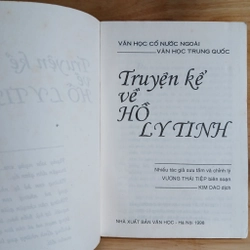 VĂN HỌC CỔ NƯỚC NGOÀI
VĂN HỌC TRUNG QUỐC
Truyện kể
về
HỒ
LY TINH
Nhiều tác giả sưu tầm và chỉnh lý
VƯƠNG THÁI TIỆP biên soạn
KIM DAO dịch
NHÀ XUẤT BẢN VĂN HỌC - Hà Nội 1996